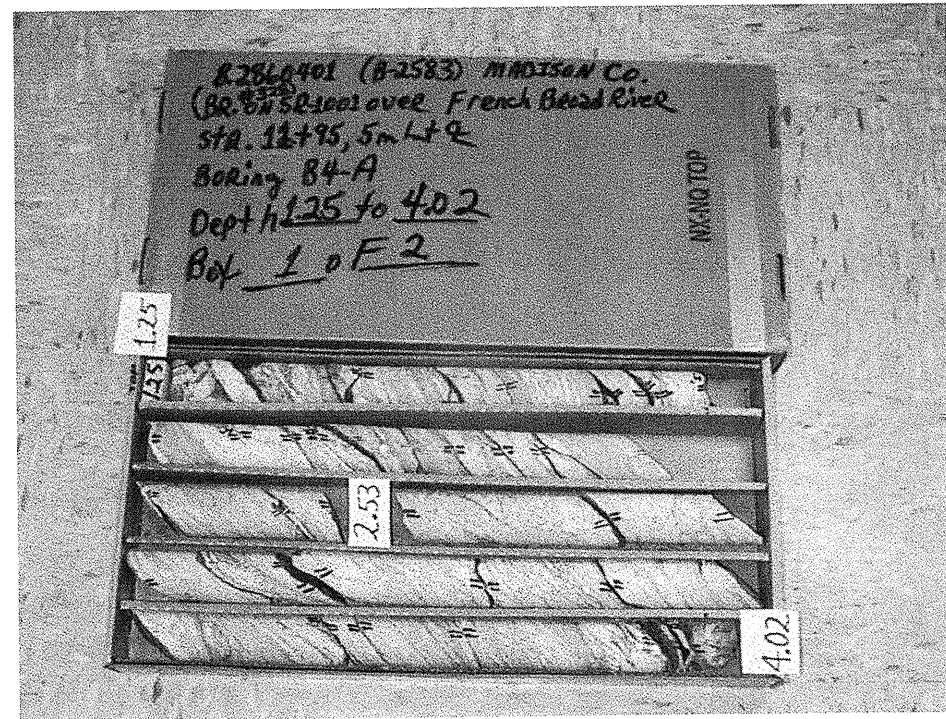 8.2860401 (B-2583) MADISON Co.
(BR. ON SR-1001 over French Broad River
Sta. 11+95, 5m Lt
Boring B4-A
Depth 1.25 to 4.02
Box 1 of 2
NX-NQ TOP
1.25
1.25
2.53
4.02